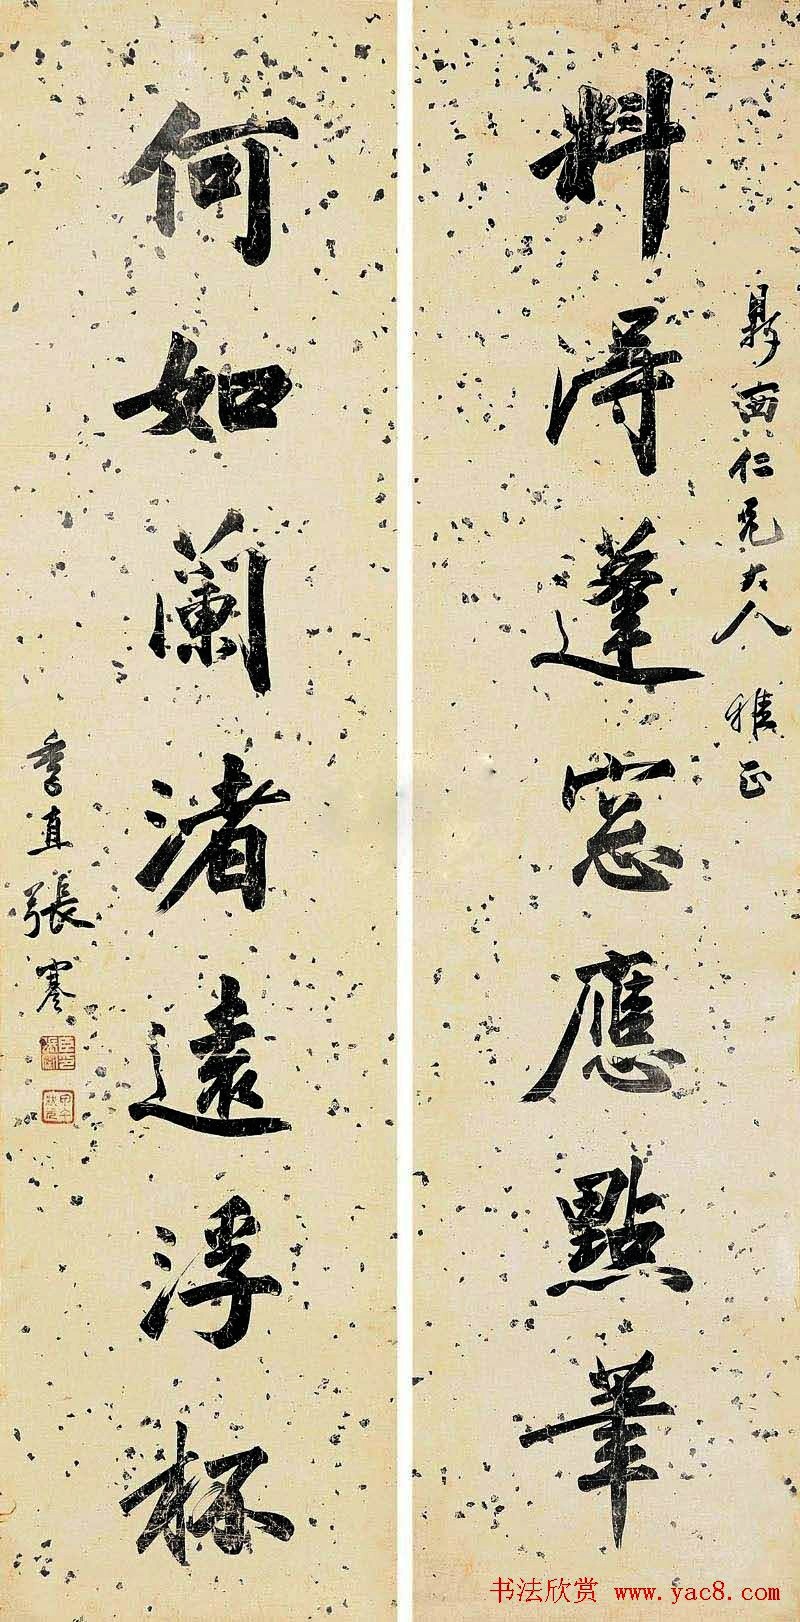 鼎西仁兄大人 雅正
料得蓬窓應點筆
何如蘭渚遠浮杯
季直張謇
书法欣赏 www.yac8.com